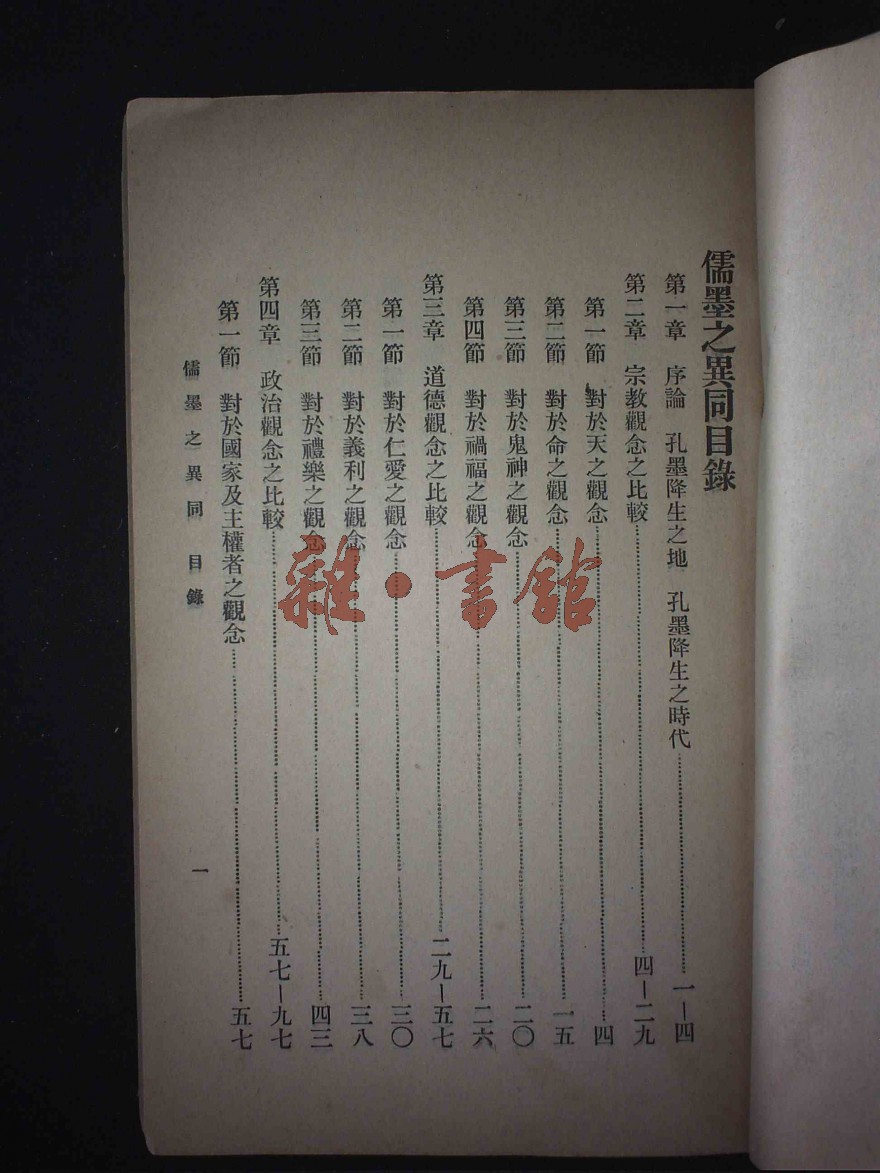 儒墨之異同目錄
第一章　序論　孔墨降生之地　孔墨降生之時代……一—四
第二章　宗教觀念之比較……四—二九
第一節　對於天之觀念……四
第二節　對於命之觀念……一五
第三節　對於鬼神之觀念……二〇
第四節　對於禍福之觀念……二六
第三章　道德觀念之比較……二九—五七
第一節　對於仁愛之觀念……三〇
第二節　對於義利之觀念……三八
第三節　對於禮樂之觀念……四三
第四章　政治觀念之比較……五七—九七
第一節　對於國家及主權者之觀念……五七
儒墨之異同　目錄
一
雜・書館